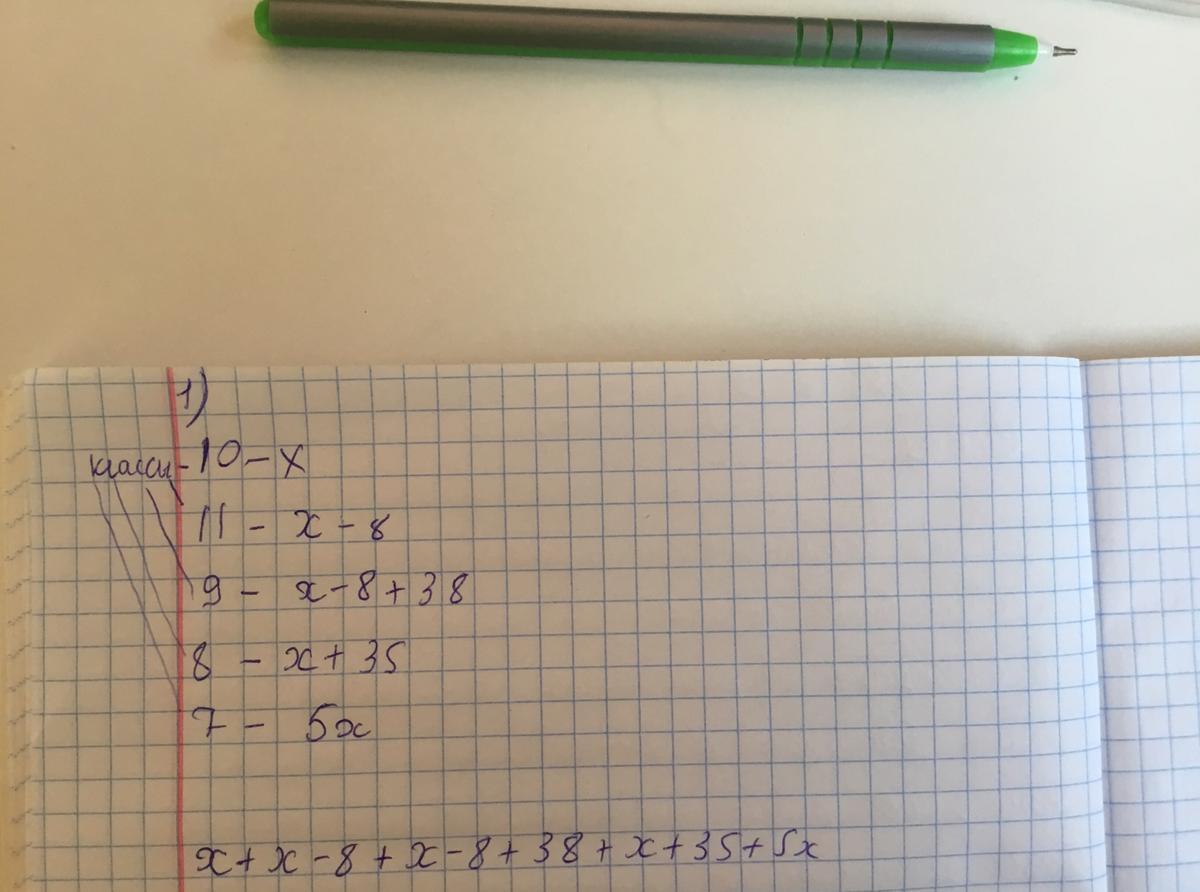 1)
классы - 10 - x
11 - x - 8
9 - x - 8 + 38
8 - x + 35
7 - 5x
x + x - 8 + x - 8 + 38 + x + 35 + 5x